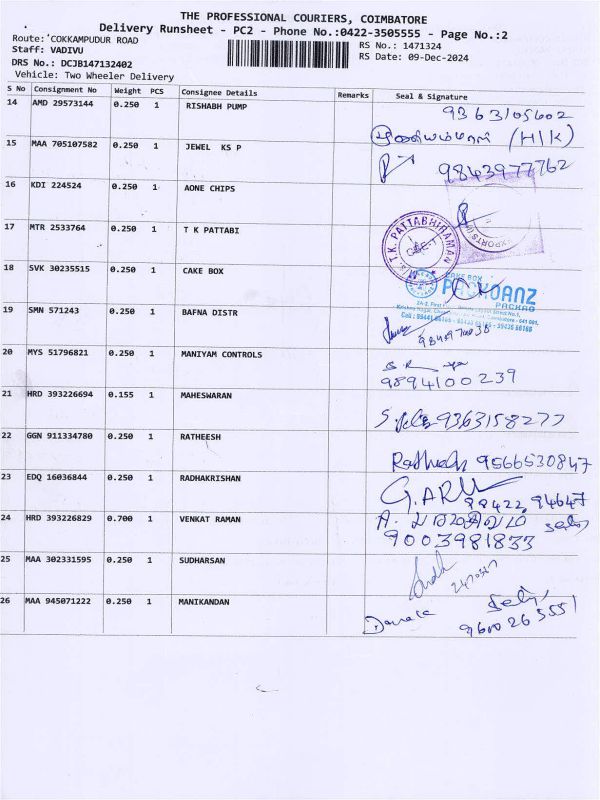 THE PROFESSIONAL COURIERS, COIMBATORE
Delivery Runsheet - PC2 - Phone No.:0422-3505555 - Page No.:2
Route: COKKAMPUDUR ROAD
Staff: VADIVU
RS No.: 1471324
RS Date: 09-Dec-2024
DRS No.: DCJB147132402
Vehicle: Two Wheeler Delivery
S No Consignment No Weight PCS Consignee Details Remarks Seal & Signature
14 AMD 29573144 0.250 1 RISHABH PUMP 9363105602
(HIK)
15 MAA 705107582 0.250 1 JEWEL KS P 9843977762
16 KDI 224524 0.250 1 AONE CHIPS
17 MTR 2533764 0.250 1 T K PATTABI T.K. PATTABHIRAMAN
18 SVK 30235515 0.250 1 CAKE BOX CAKE BOX
PACKOANZ
PACKAG
19 SMN 571243 0.250 1 BAFNA DISTR
20 MYS 51796821 0.250 1 MANIYAM CONTROLS
9894100239
21 HRD 393226694 0.155 1 MAHESWARAN 9363158277
22 GGN 911334780 0.250 1 RATHEESH Ratheesh 9566530847
23 EDQ 16036844 0.250 1 RADHAKRISHAN G.ARU
98422 94647
24 HRD 393226829 0.700 1 VENKAT RAMAN
9003981833
25 MAA 302331595 0.250 1 SUDHARSAN
26 MAA 945071222 0.250 1 MANIKANDAN
9600265551